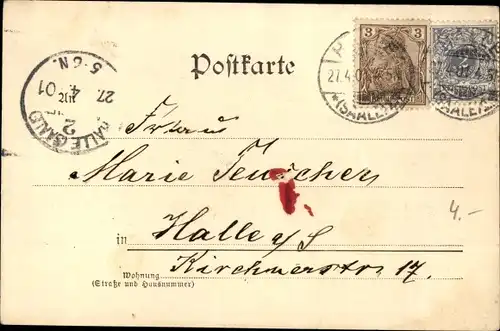 Postkarte
3
27.4.01
(SAALE)
5-6N.
27
4.01
HALLE (SAALE)
2
Frau
Marie Teuscher
in Halle a/S
Kirchnerstr 17.
Wohnung
(Straße und Hausnummer)
4.-